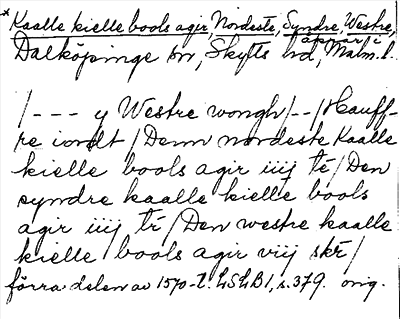 * Kaalle kielle bools agir, Nordeste, Syndre, Westre,
Dalköpinge sn, Skytts hd, Malm. l.
/--- y Westre wongh/--/Hauff-
re iordt/Denn nordeste Kaalle
kielle bools agir iiij tr̃/Den
syndre kaalle kielle bools
agir iiij tr̃/Den westre kaalle
kielle bools agir viij skr̃/
förra delen av 1570-t. LSLB1, s. 379. orig.